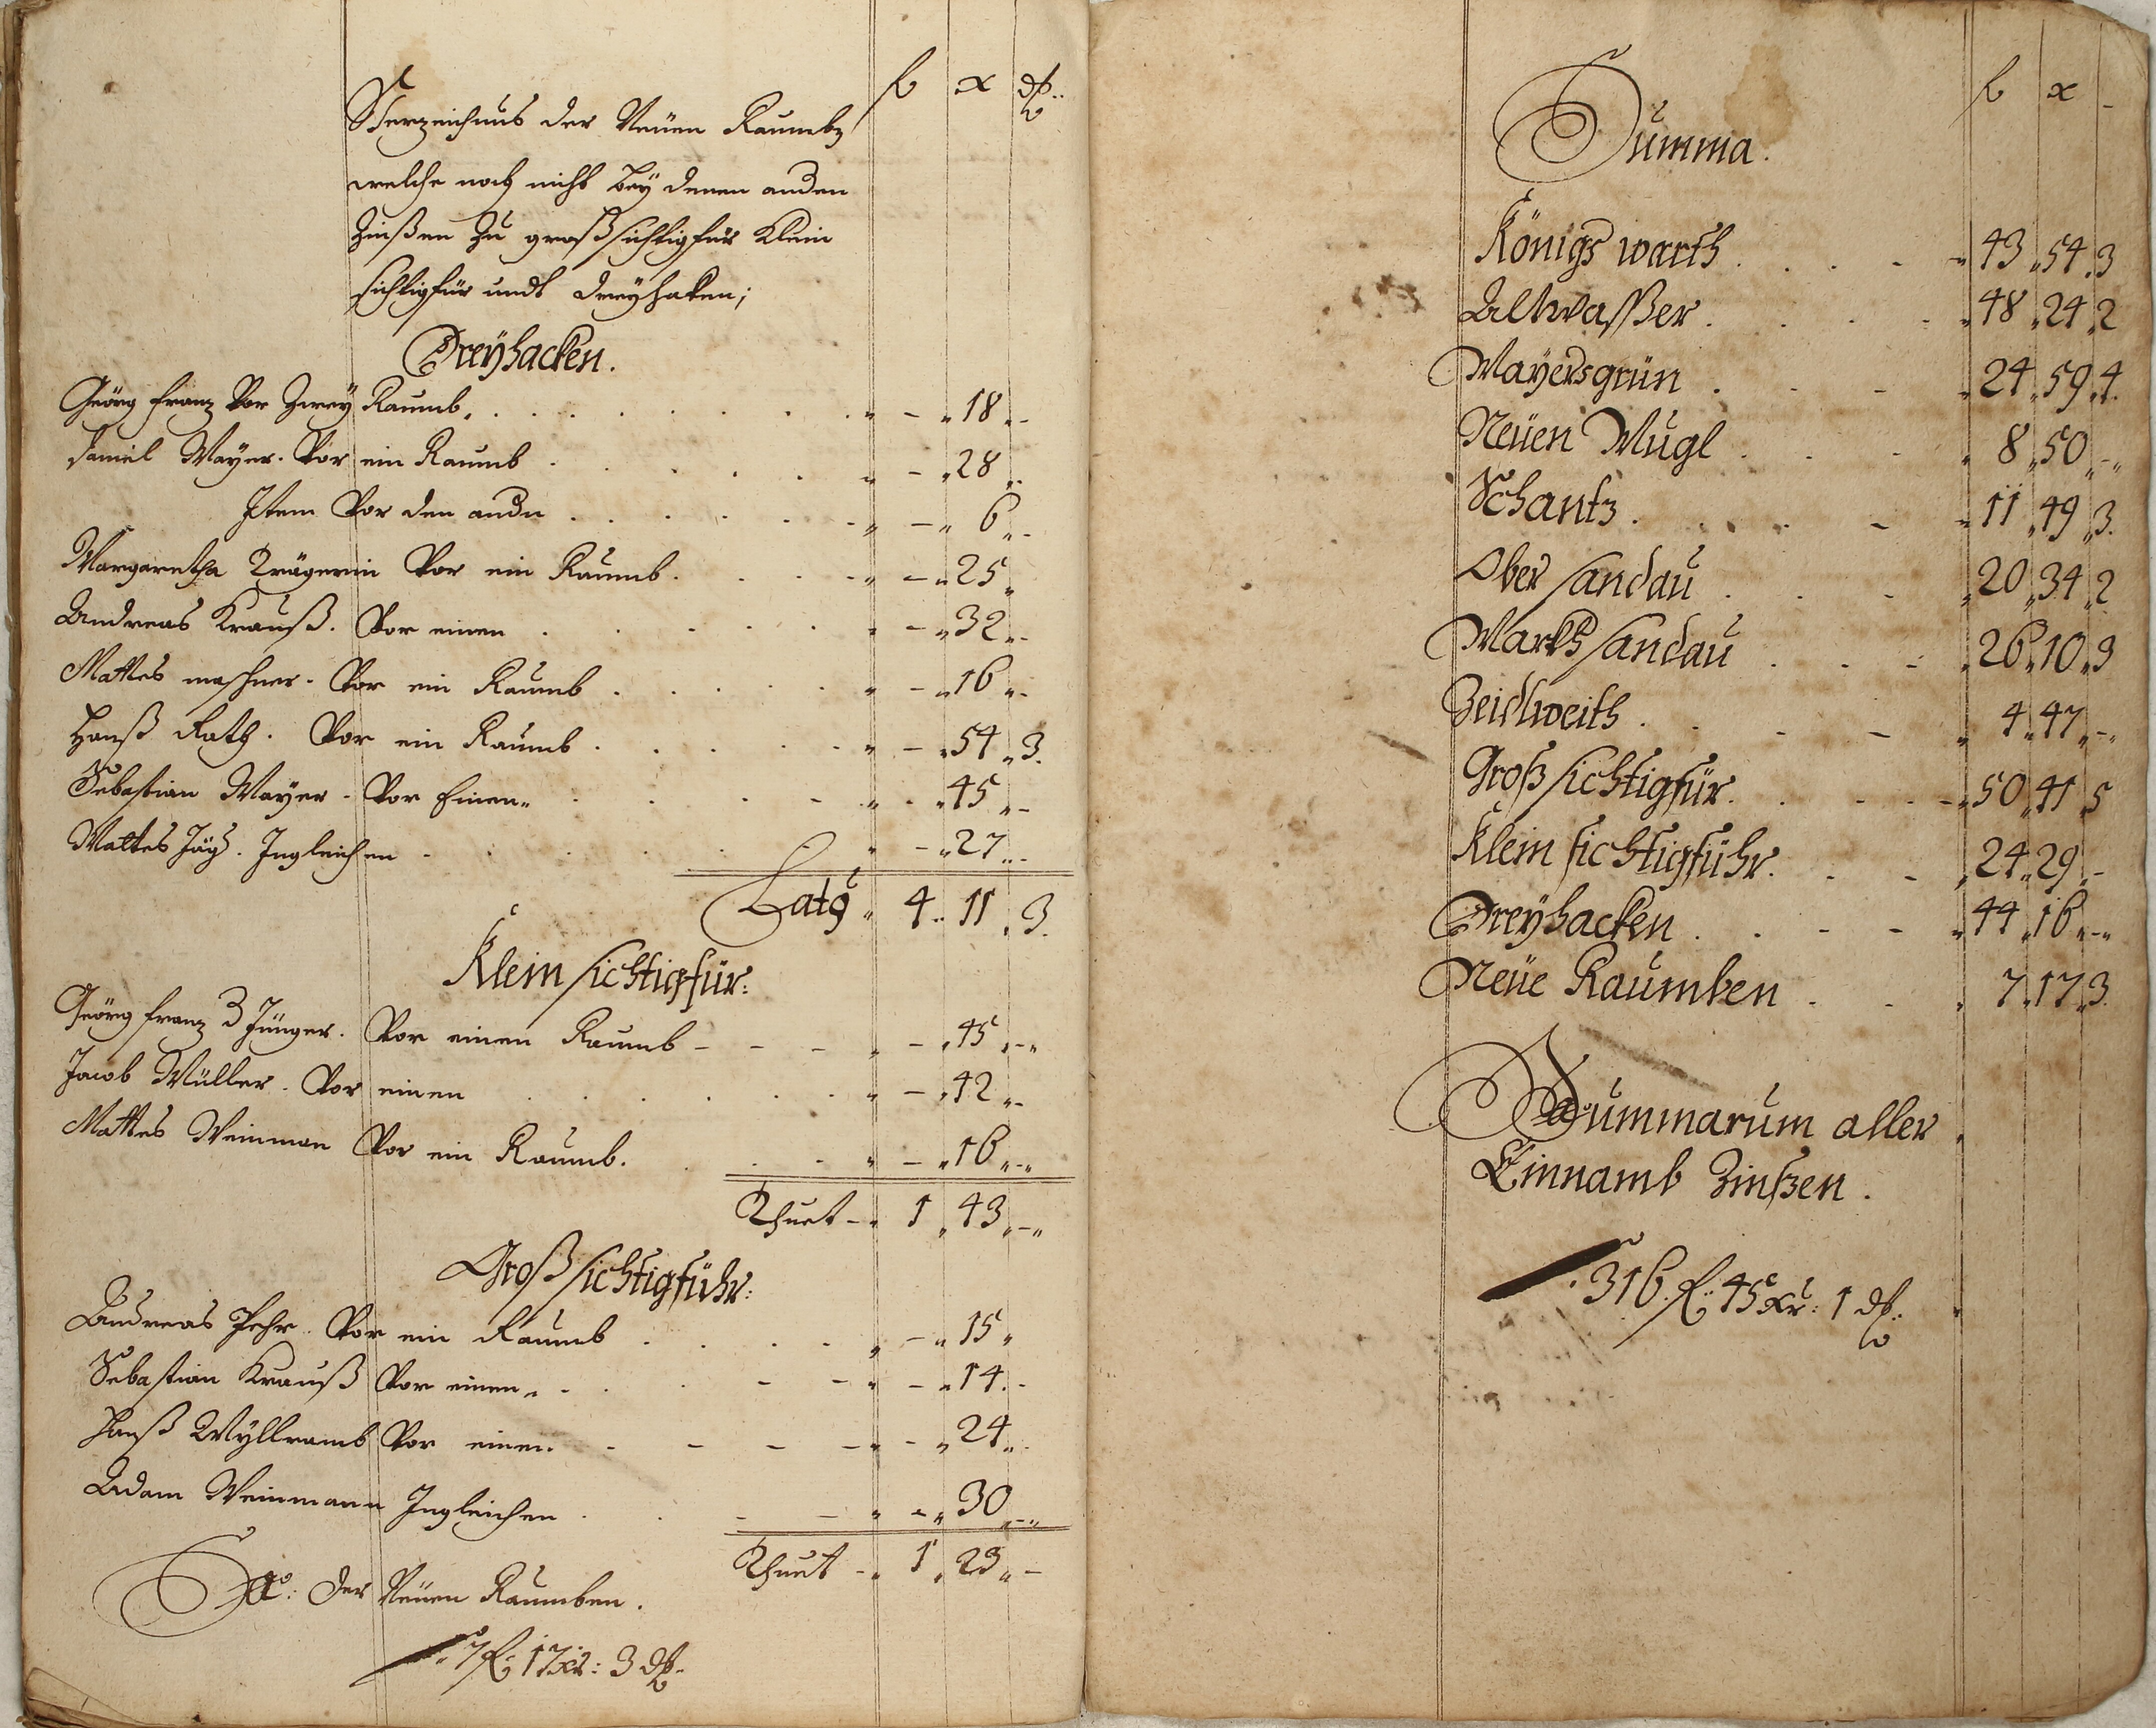 fl x dl
Verzeichnus der Neuen Raumb,
welche noch nicht bey denen andern
Zinßen zu groß sichtigfür Klein
sichtigfür undt Dreyhaken;
Dreyhacken.
Geörg Franz Vor Zweÿ Raumb. „ – „ 18 „ –
Daniel Mayer. Vor ein Raumb . „ – „ 28 „
Item Vor den andn . „ – „ 6 „ –
Margaretha Trägerin Vor ein Raumb. „ – „ 25 „
Andreas Krauß. Vor einen . „ – „ 32 „ –
Mattes maschner. Vor ein Raumb . „ – „ 16 „ –
Hanß Rath. Vor ein Raumb . „ – „ 54 „ 3.
Sebastian Mayer. Vor Einen „ . „ 45 „ –
Mattes Jäg. Ingleichen „ – „ 27 „ –
Latg „ 4 „ 11 „ 3.
Klein sichtigfür:
Geörg Franz D Jünger. Vor einen Raumb „ – „ 45 „ – „
Jacob Müller. Vor einen „ – „ 42 „ –
Mattes Weinman Vor ein Raumb. „ – „ 16 „ – „
Thuet – „ 1 „ 43 „ – „
Groß sichtigführ:
Andreas Pehr. Vor ein Raumb „ – „ 15 „
Sebastian Krauß Vor einen „ „ – „ 14. –
Hanß Wyllramb Vor einen. „ – „ 24 „
Adam Weinmann Ingleichen „ – „ 30 „ – „
Thuet – „ 1 „ 23 „ –
Sa: der Neuen Raumben.
7 fl: 17 xr: 3 dl.
fl x –
Summa.
Königs warth „ 43 „ 54 „ 3
Altwasser . „ 48 „ 24 „ 2
Mayersgrün . „ 24 „ 59 „ 4.
Neüen Mugl . „ 8 „ 50 „ – „
Schantz . „ 11 „ 49 „ 3.
Ober sandau . „ 20 „ 34 „ 2
Markh sandau . „ 26 „ 10 „ 3
Zeidlweith . „ 4 „ 47 „ – „
Groß sichtigfür . „ 50 „ 41 „ 5
Klein sichtigführ . „ 24 „ 29 „ –
Dreyhacken . „ 44 „ 16 „ – „
Neüe Raumben . „ 7 „ 17 „ 3.
Summarum aller
Einnamb Zinßen .
316 fl: 45 xr: 1 dl.